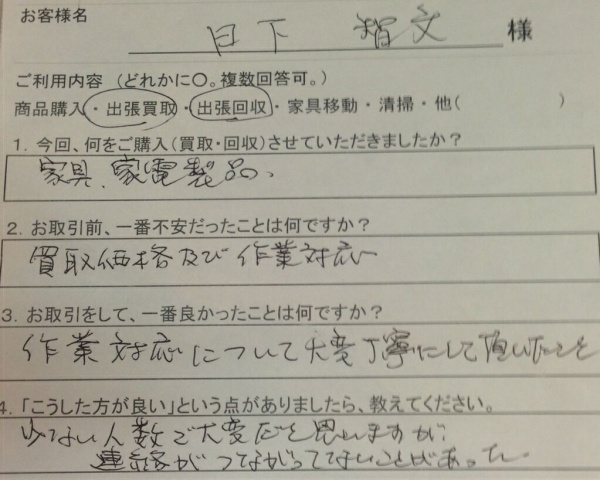 お客様名
日下 智文 様
ご利用内容 (どれかに〇。複数回答可。)
商品購入・出張買取・出張回収・家具移動・清掃・他( )
1. 今回、何をご購入(買取・回収)させていただきましたか?
家具、家電製品、
2. お取引前、一番不安だったことは何ですか?
買取価格及び作業対応
3. お取引をして、一番良かったことは何ですか?
作業対応について大変丁寧にして頂いたこと
4. 「こうした方が良い」という点がありましたら、教えてください。
少ない人数で大変だと思いますが
連絡がつながってないことがあった